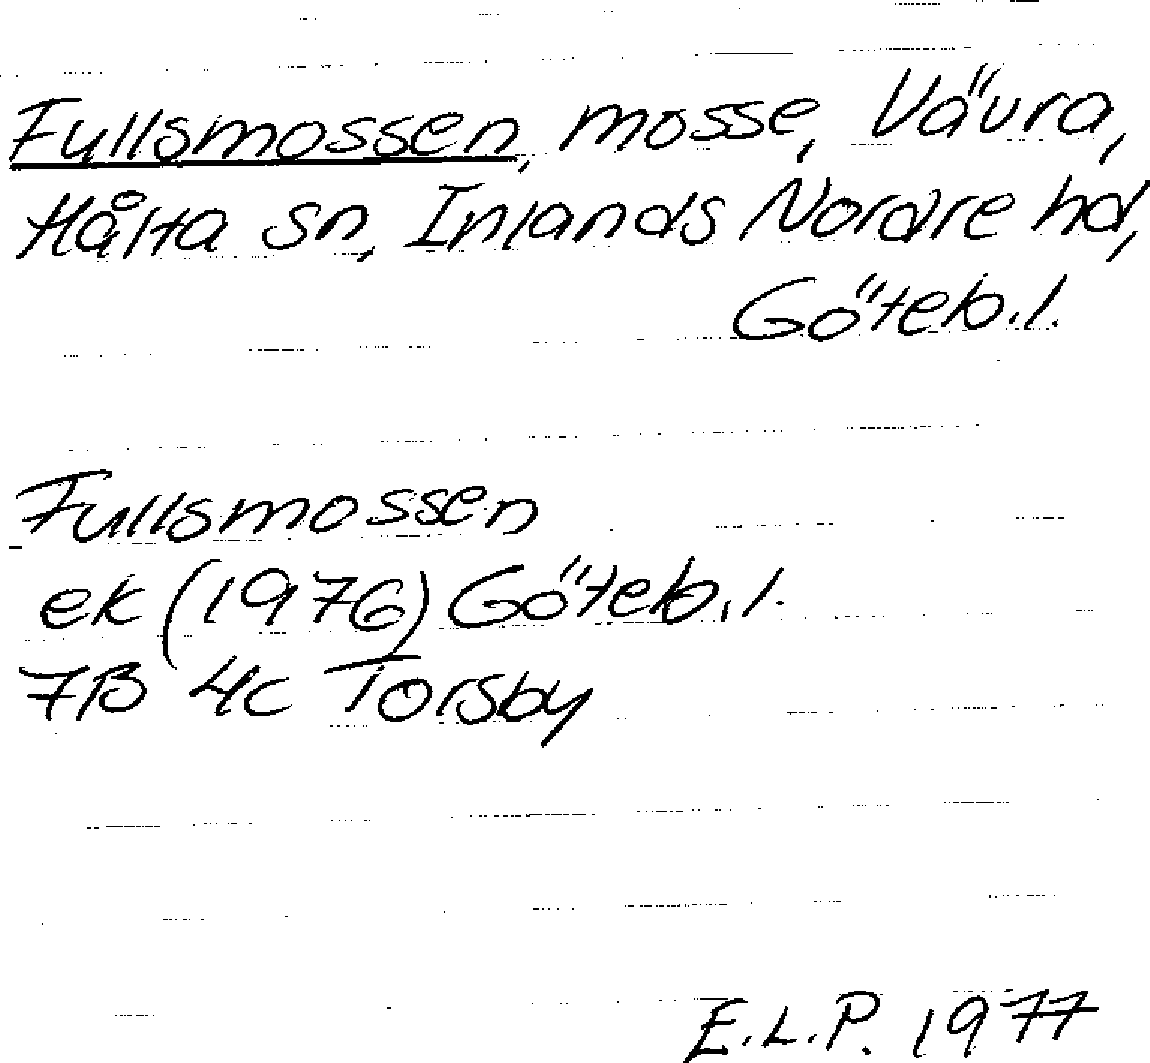 Fullsmossen, mosse, Vävra,
Hålta sn, Inlands Nordre hd,
Göteb.l.
Fullsmossen
ek (1976) Göteb.l.
7B 4c Torsby
E.L.P. 1977